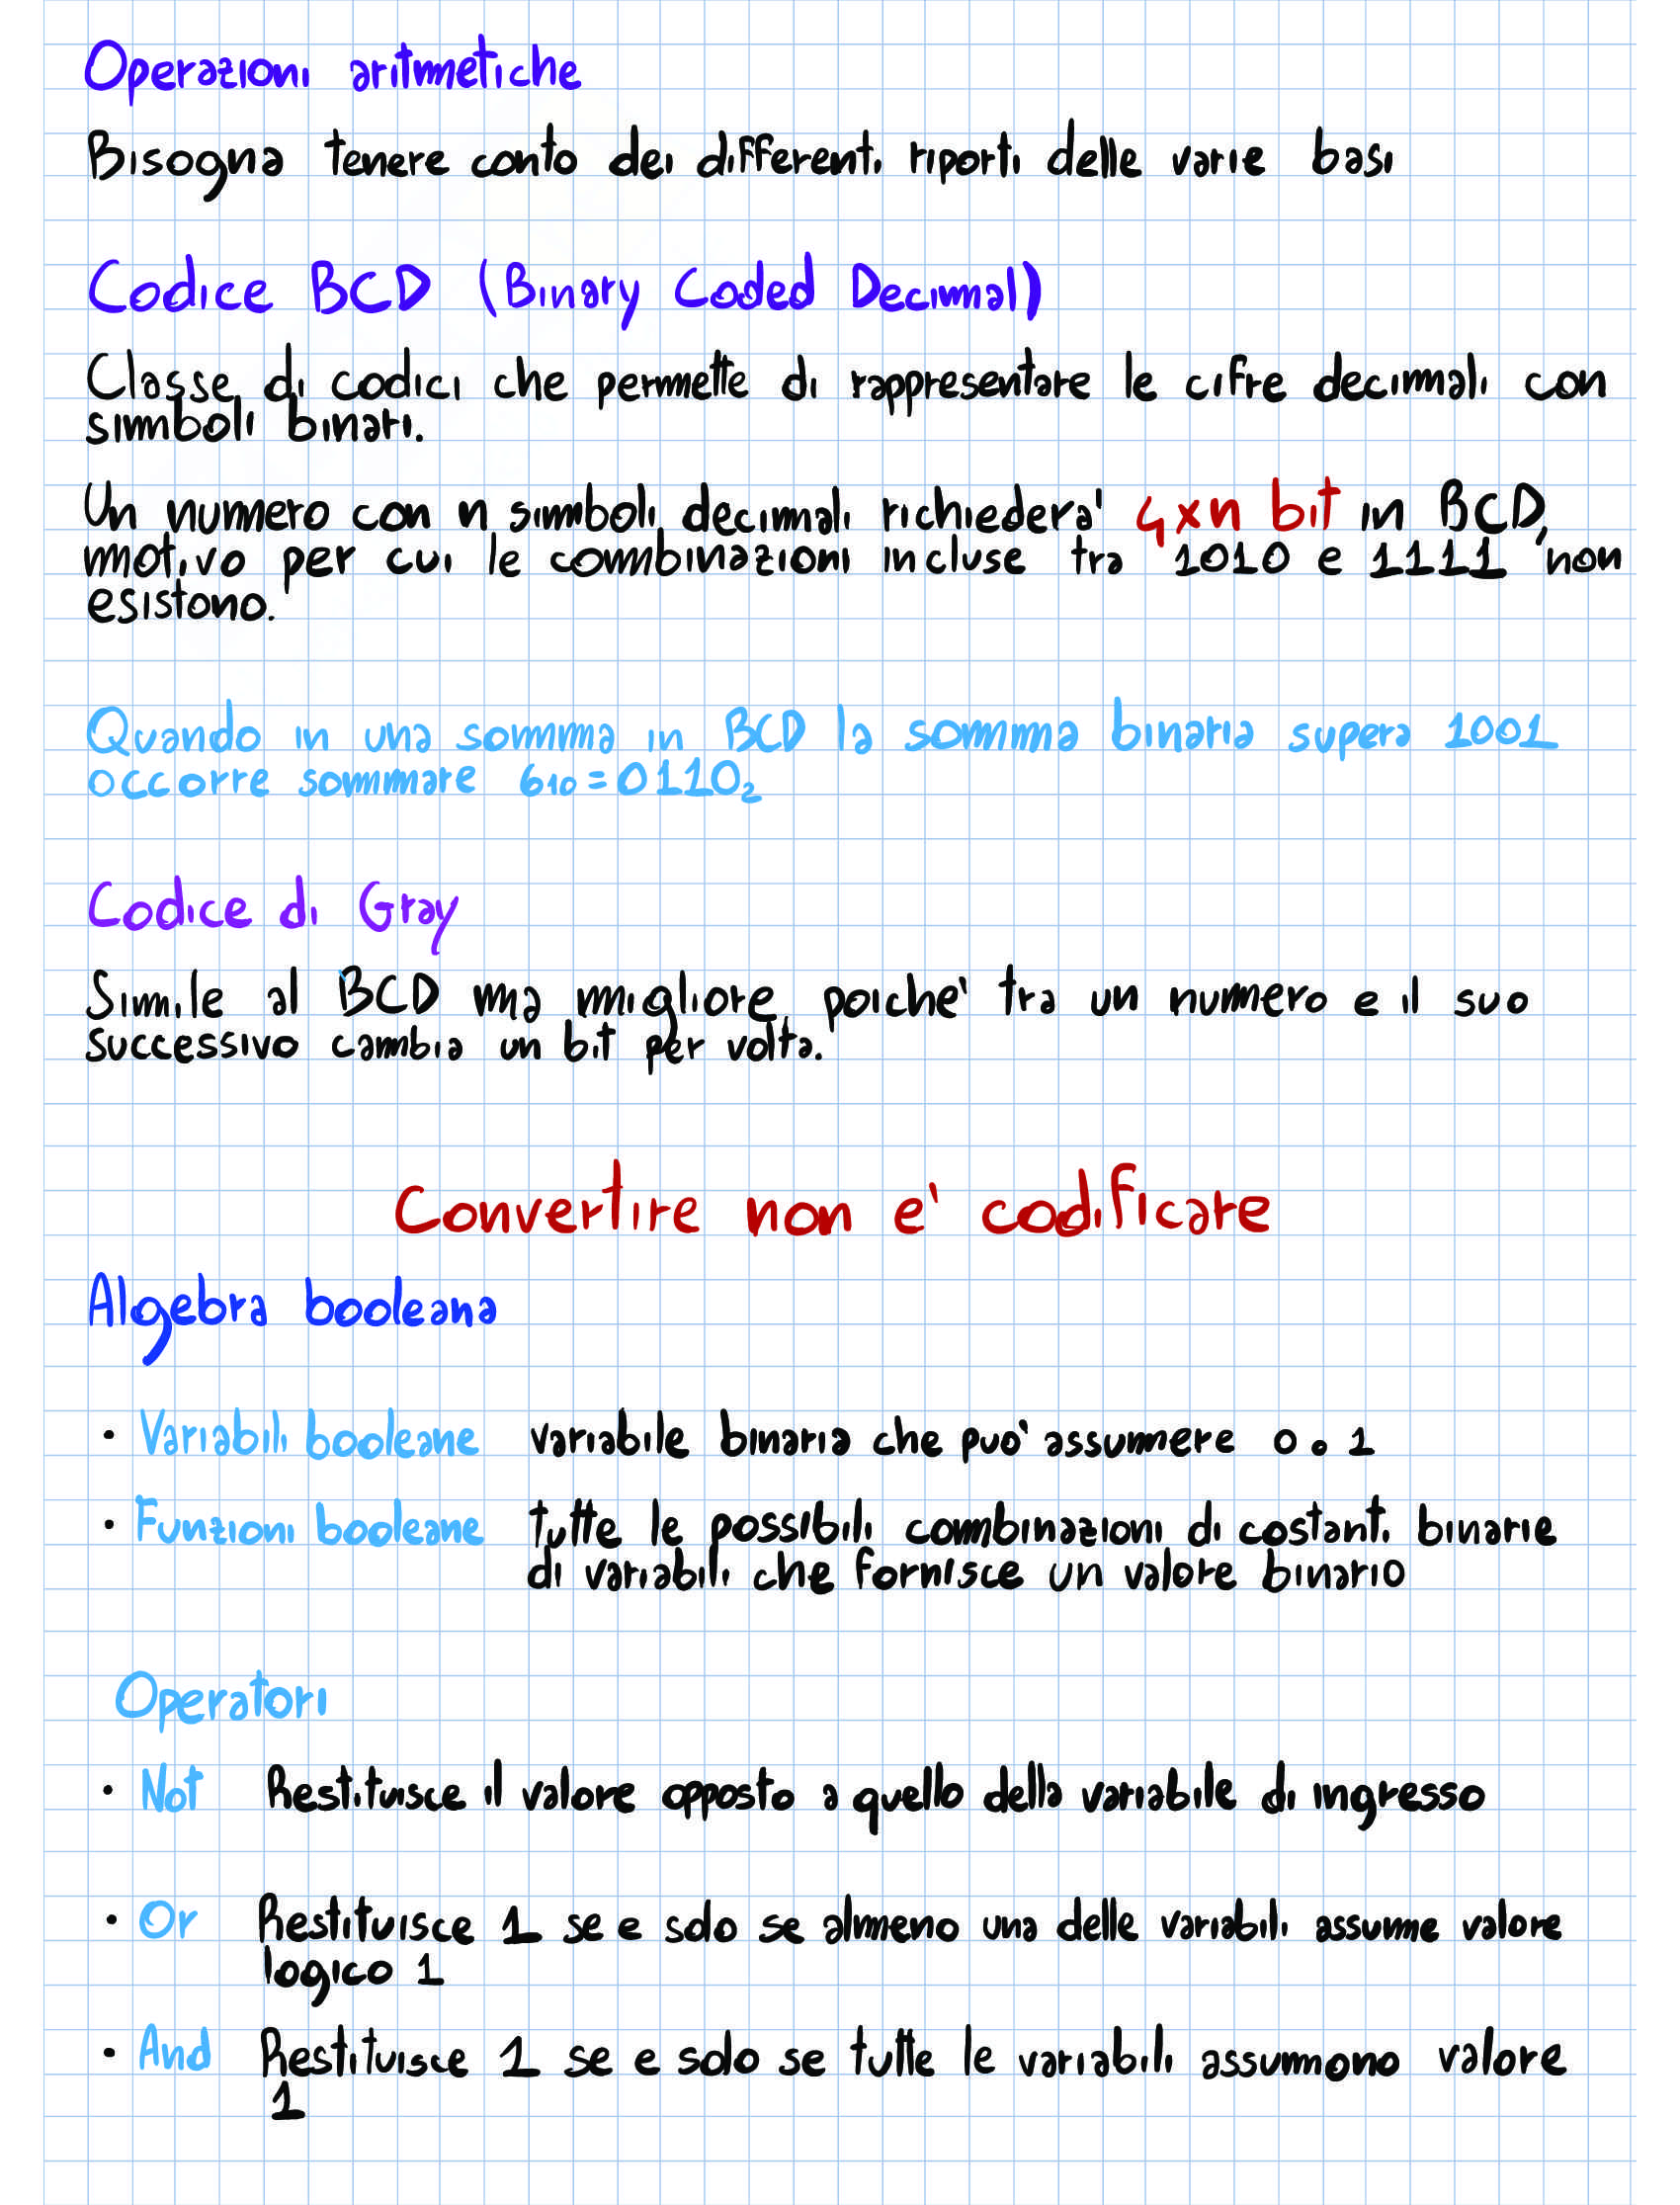 Operazioni aritmetiche
Bisogna tenere conto dei differenti riporti delle varie basi
Codice BCD (Binary Coded Decimal)
Classe di codici che permette di rappresentare le cifre decimali con
simboli binari.
Un numero con n simboli decimali richiedera' 4xn bit in BCD,
motivo per cui le combinazioni incluse tra 1010 e 1111 non
esistono.
Quando in una somma in BCD la somma binaria supera 1001
occorre sommare 6₁₀=0110₂
Codice di Gray
Simile al BCD ma migliore poiche' tra un numero e il suo
successivo cambia un bit per volta.
Convertire non e' codificare
Algebra booleana
· Variabili booleane variabile binaria che puo' assumere 0 o 1
· Funzioni booleane tutte le possibili combinazioni di costanti binarie
di variabili che fornisce un valore binario
Operatori
· Not Restituisce il valore opposto a quello della variabile di ingresso
· Or Restituisce 1 se e solo se almeno una delle variabili assume valore
logico 1
· And Restituisce 1 se e solo se tutte le variabili assumono valore
1